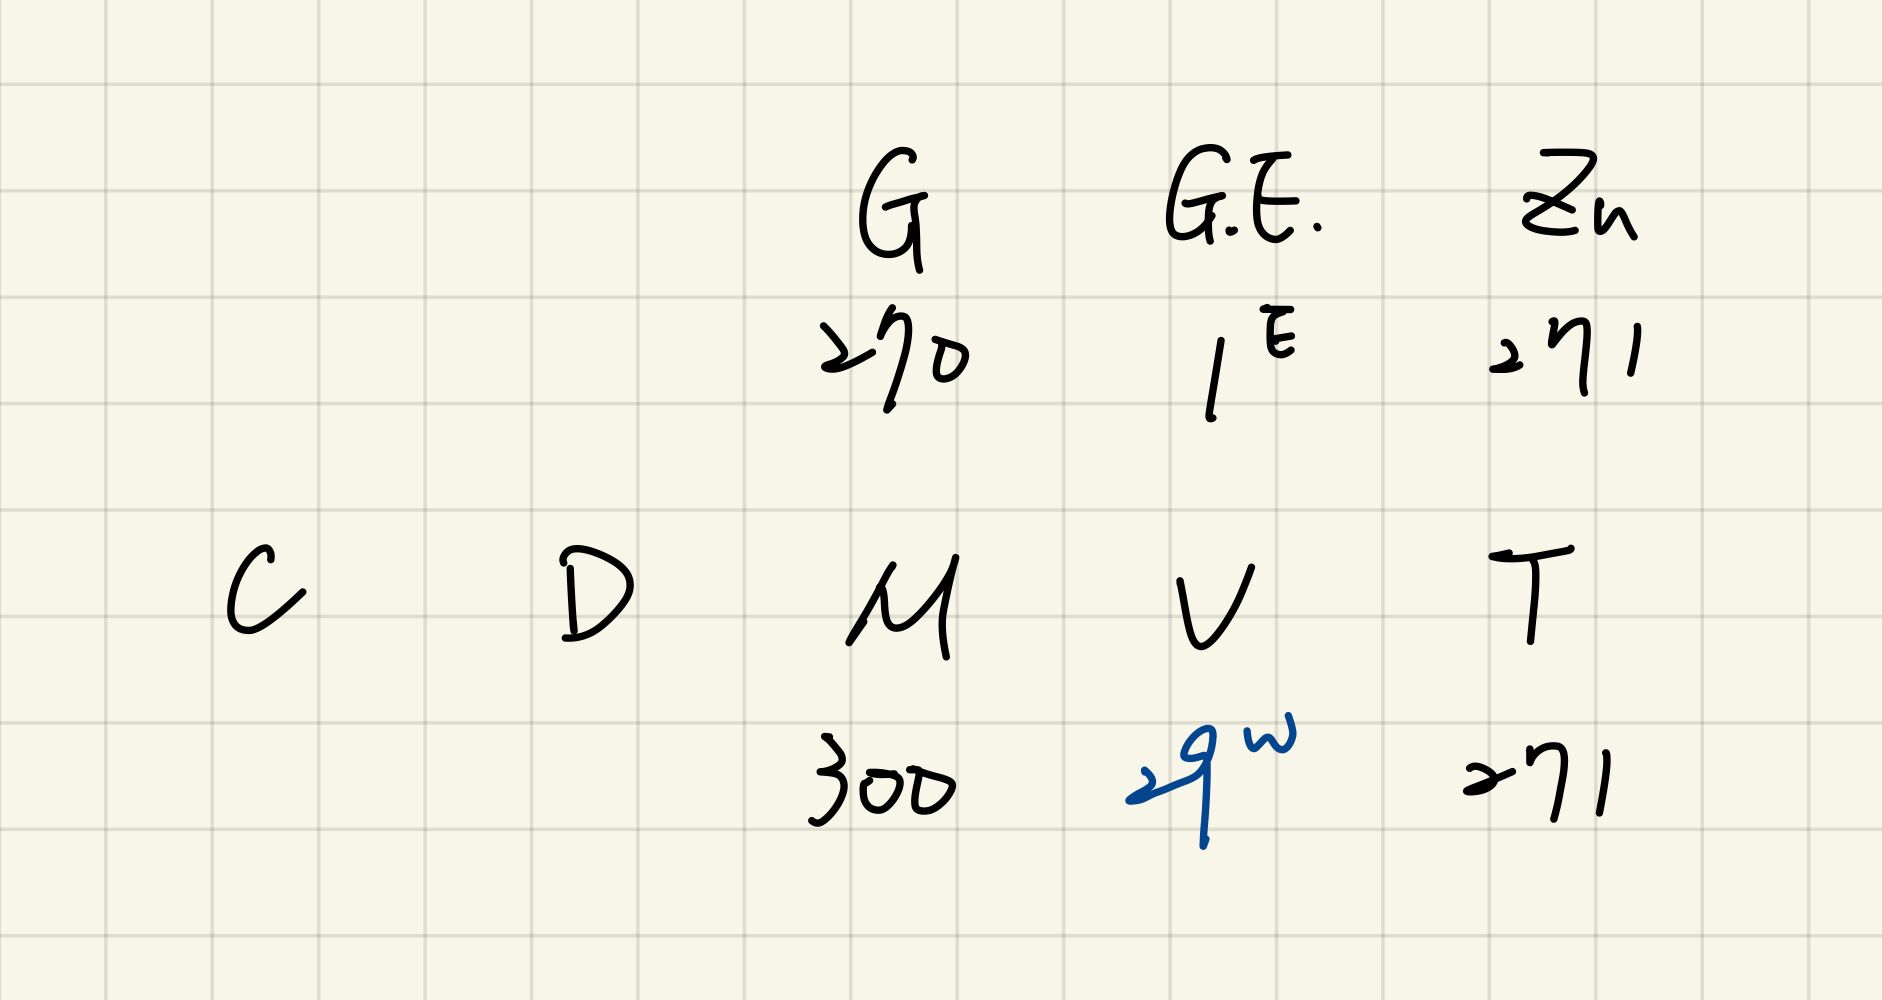 G G.E. Zn
270 1E 271
C D M V T
300 29W 271